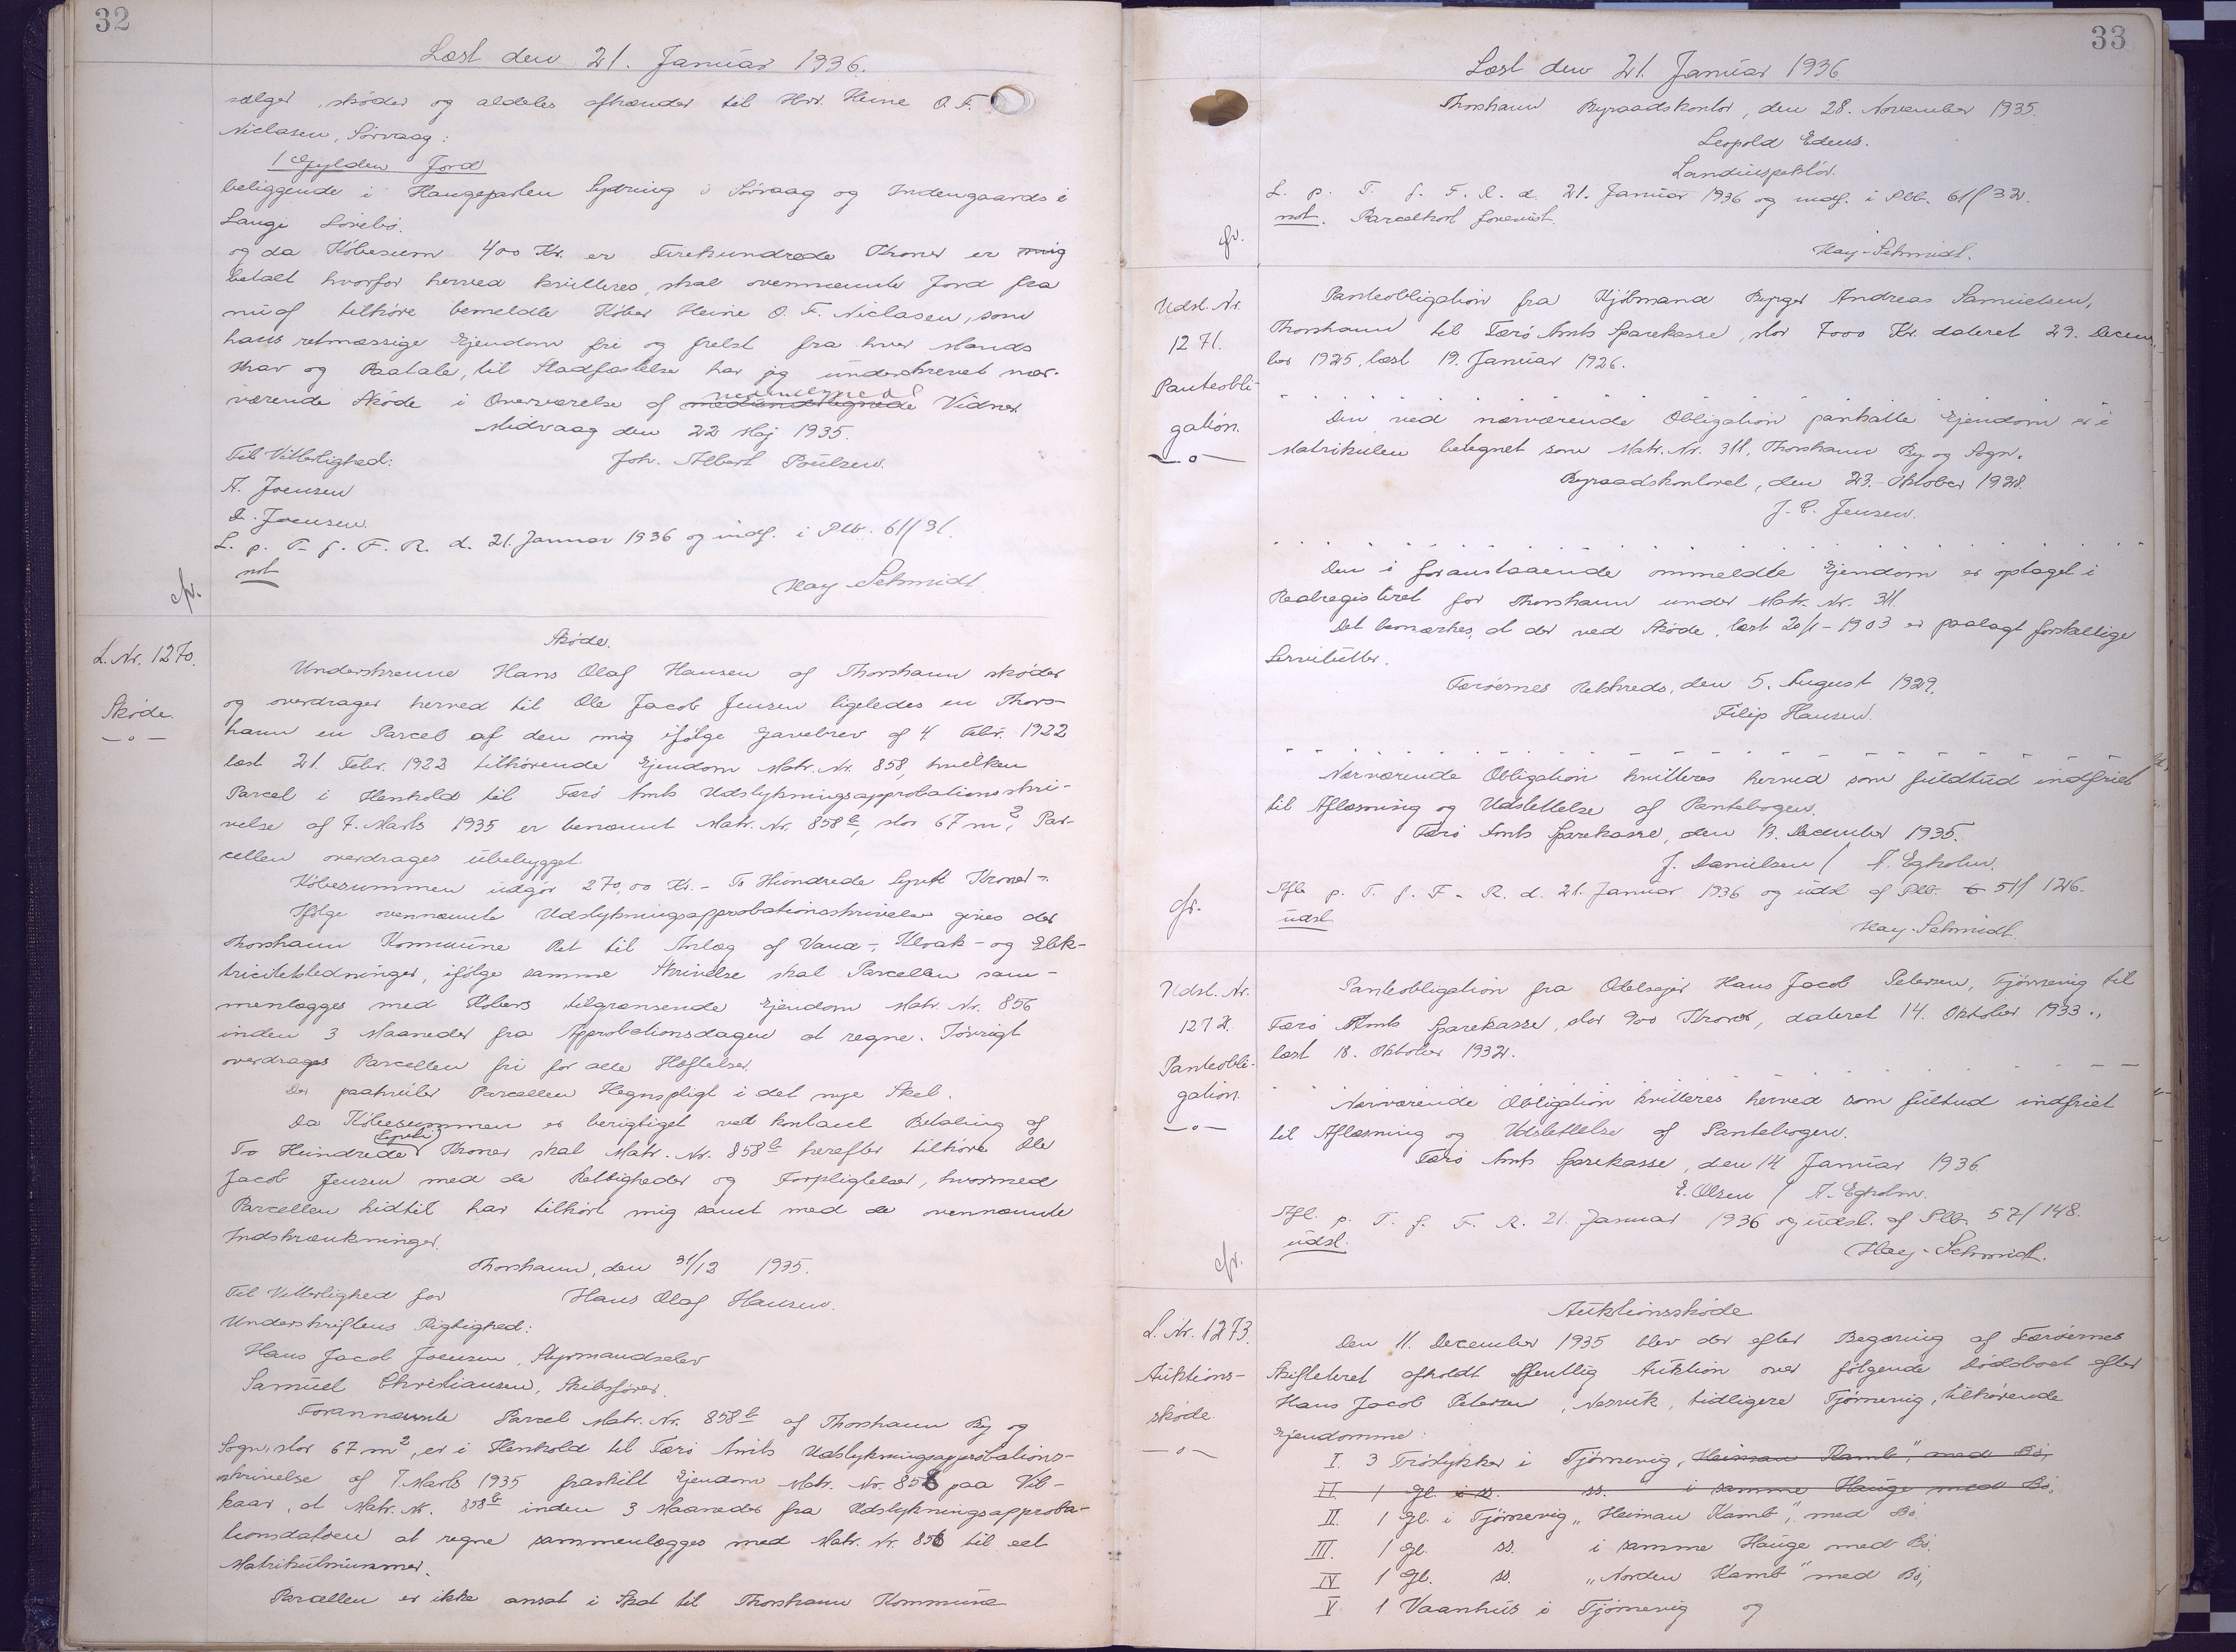 32
Læst den 21. Januar 1936.
sælger, skøder og aldeles afhænder til Hrr. Heine O. F.
Niclasen, Sørvaag:
1 Gylden Jord
beliggende i Haugeparten Sydring i Sørvaag og Indengaards i
Laugi Sørebø.
og da Købesum 400 Kr. er Firehundrede Kroner er mig
betalt hvorfor herved kvitteres, skal ovennævnte Jord fra
nu af tilhøre bemeldte Køber Heine O. F. Niclasen, som
hans retmæssige Ejendom fri og frelst fra hver Mands
Krav og Paatale, til Stadfæstelse har jeg underskrevet nær-
værende Skøde i Overværelse af medundertegnede Vidner
Midvaag den 22 Maj 1935.
Til Vitterlighed: Joh. Albert Poulsen.
A. Joensen
D. Joensen.
L. p. T. f. F. R. d. 21. Januar 1936 og indf. i Ptb. 61/31.
not
Kay-Schmidt
cfr.
L. Nr. 1270.
Skøde.
Skøde.
Underskrevne Hans Olaf Hansen af Thorshavn skøder
og overdrager herved til Ole Jacob Jensen ligeledes en Thors-
havn en Parcel af den mig ifølge Gavebrev af 4. Febr. 1922
læst 21. Febr. 1922 tilhørende Ejendom Matr. Nr. 858, hvilken
Parcel i Henhold til Færø Amts Udstykningsapprobationsskri-
velse af 7. Marts 1935 er benævnt Matr. Nr. 858 b, stor 67 m², Par-
cellen overdrages ubebygget.
Købesummen udgør 270,00 Kr. - To Hundrede Sytti Kroner -.
Ifølge ovennævnte Udstykningsapprobationsskrivelse gives der
Thorshavn Kommune Ret til Anlæg af Vand-, Kloak- og Elek-
tricitetsledninger, ifølge samme Skrivelse skal Parcellen sam-
menlægges med Købers tilgrænsende Ejendom Matr. Nr. 856
inden 3 Maaneder fra Approbationsdagen at regne. Iøvrigt
overdrages Parcellen fri for alle Hæftelser.
Der paahviler Parcellen Hegnspligt i det nye Skel.
Da Købesummen er berigtiget ved kontant Betaling af
To Hundrede Sytti Kroner skal Matr. Nr. 858 b herefter tilhøre Ole
Jacob Jensen med de Rettigheder og Forpligtelser, hvormed
Parcellen hidtil har tilhørt mig samt med de ovennævnte
Indskrænkninger.
Thorshavn, den 31/12 1935.
Til Vitterlighed for Hans Olaf Hansen.
Underskriftens Rigtighed:
Hans Jacob Joensen, Styrmandselev
Samuel Christiansen, Skibsfører.
Forannævnte Parcel Matr. Nr. 858 b af Thorshavn By og
Sogn, stor 67 m², er i Henhold til Færø Amts Udstykningsapprobations-
skrivelse af 7. Marts 1935 fraskilt Ejendom Matr. Nr. 858 paa Vil-
kaar, at Matr. Nr. 858 b inden 3 Maaneder fra Udstykningsapproba-
tionsdatoen at regne sammenlægges med Matr. Nr. 856 til eet
Matrikulnummer.
Parcellen er ikke ansat i Skat til Thorshavn Kommune
33
Læst den 21. Januar 1936
Thorshavn Byraadskontor, den 28. November 1935.
Leopold Edens.
Landinspektør.
L. p. T. f. F. R. d. 21. Januar 1936 og indf. i Ptb. 61/32.
not. Parcelkort forevist.
Kay-Schmidt.
cfr.
Udsl. Nr.
1271.
Panteobli-
gation.
Panteobligation fra Kjøbmand Byrger Andreas Samuelsen,
Thorshavn til Færø Amts Sparekasse, stor 7000 Kr. dateret 29. Decem-
ber 1925, læst 19. Januar 1926.
Den ved nærværende Obligation pantsatte Ejendom er i
Matrikulen betegnet som Matr. Nr. 311, Thorshavn By og Sogn.
Byraadskontoret, den 23. Oktober 1928.
J. C. Jensen.
Den i foranstaaende ommeldte Ejendom er optaget i
Realregisteret for Thorshavn under Matr. Nr. 311.
Det bemærkes, at der ved Skøde, læst 20/1-1903 er paalagt forskellige
Servitutter.
Færøernes Retskreds, den 5. August 1929.
Filip Hansen.
Nærværende Obligation kvitteres herved som fuldtud indfriet
til Aflæsning og Udslettelse af Pantebogen.
Færø Amts Sparekasse, den 13. December 1935.
J. Danielsen / A. Egholm.
Afl. p. T. f. F. R. d. 21. Januar 1936 og udsl. af Ptb. 51/126.
udsl.
Kay-Schmidt.
cfr.
Udsl. Nr.
1272.
Panteobli-
gation.
Panteobligation fra Odelsejer Hans Jacob Petersen, Tjørnevig til
Færø Amts Sparekasse, stor 900 Kroner, dateret 14. Oktober 1932.,
læst 18. Oktober 1932.
Nærværende Obligation kvitteres herved som fultud indfriet
til Aflæsning og Udslettelse af Pantebogen.
Færø Amts Sparekasse, den 14 Januar 1936
E. Olsen / A. Egholm.
Afl. p. T. f. F. R. 21. Januar 1936 og udsl. af Ptb. 57/148.
udsl.
Kay-Schmidt.
cfr.
L. Nr. 1273.
Auktions-
skøde
Auktionsskøde
Den 11. December 1935 blev der efter Begæring af Færøernes
Skifteret afholdt offentlig Auktion over følgende Dødsboet efter
Hans Jacob Petersen, Nesvik, tidligere Tjørnevig, tilhørende
Ejendomme:
I. 3 Trøstykker i Tjørnevig, Heiman Kamb", med Bø,
II. 1 Gl. i ss. ss. i samme Hauge med Bø.
II. 1 Gl. i Tjørnevig „Heiman Kamb", med Bø,
III. 1 Gl. ss. i samme Hauge med Bø.
IV 1 Gl. ss. „Norden Kamb" med Bø,
V 1 Vaanhus i Tjørnevig og